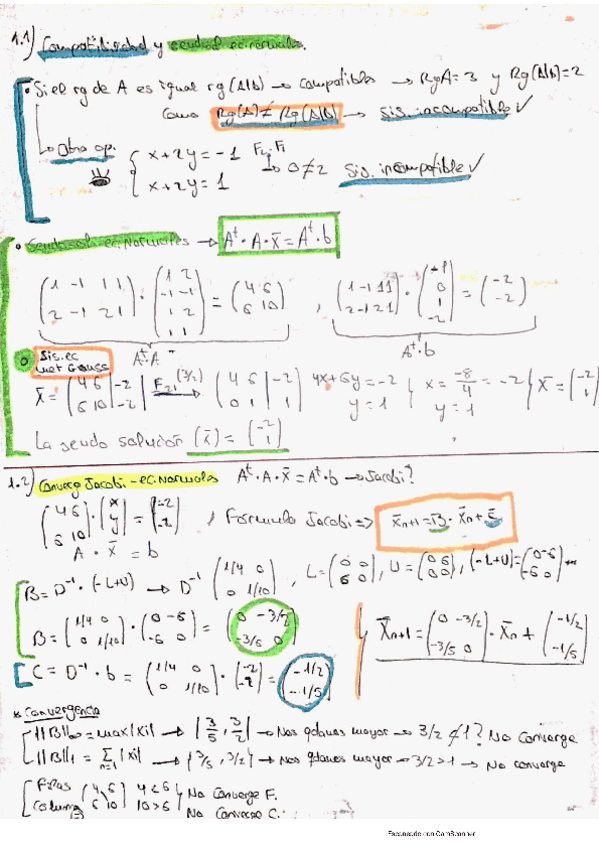 1.1) Compatibilidad y seudosol ec. normales.
• Si el rg de A es igual rg(A|b) → compatibles → RgA = 3 y Rg(A|b) = 2
Como Rg(A) ≠ Rg(A|b) → sis. incompatible ✓
↳ Otra op. { x+2y = -1 F2-F1
x+2y = 1 ↳ 0 ≠ 2 Sis. incompatible ✓
• Seudosol. ec. Normales → Aᵗ · A · x̄ = Aᵗ · b
(1 -1 1 1 / 2 -1 2 1) · (1 2 / -1 -1 / 1 2 / 1 1) = (4 6 / 6 10) , (1 -1 1 1 / 2 -1 2 1) · (-1 / 0 / 1 / -2) = (-2 / -2)
Aᵗ·A Aᵗ·b
Sis. ec
met Gauss
x̄ = (4 6 | -2 / 6 10 | -2) F21(3/2) → (4 6 | -2 / 0 1 | 1) 4x+6y = -2 / y = 1 { x = -8/4 = -2 / y = 1 { x̄ = (-2 / 1)
La seudo solución (x̄) = (-2 / 1)
1.2) Converg Jacobi - ec. Normales Aᵗ·A·x̄ = Aᵗ·b → Jacobi?
(4 6 / 6 10) · (x / y) = (-2 / -2) , Formula Jacobi => x̄n+1 = B · x̄n + c̄
A · x̄ = b
B = D⁻¹ · (-L+U) → D⁻¹ (1/4 0 / 0 1/10) , L = (0 0 / 6 0) , U = (0 6 / 0 0) , (-L+U) = (0 -6 / -6 0)
B = (1/4 0 / 0 1/10) · (0 -6 / -6 0) = (0 -3/2 / -3/5 0)
x̄n+1 = (0 -3/2 / -3/5 0) · x̄n + (-1/2 / -1/5)
C = D⁻¹ · b = (1/4 0 / 0 1/10) · (-2 / -2) = (-1/2 / -1/5)
* Convergencia
||B||∞ = max|xi| → |3/5, 3/2| → Nos qdamos mayor → 3/2 ≮ 1? No Converge
||B||1 = Σ n=1 |xi| → {3/5, 3/2} → Nos qdamos mayor → 3/2 > 1 → No converge
Filas (4 6 / 6 10) 4 < 6 } No Converge F.
Columna 10 > 6 } No Converge C.
Escaneado con CamScanner